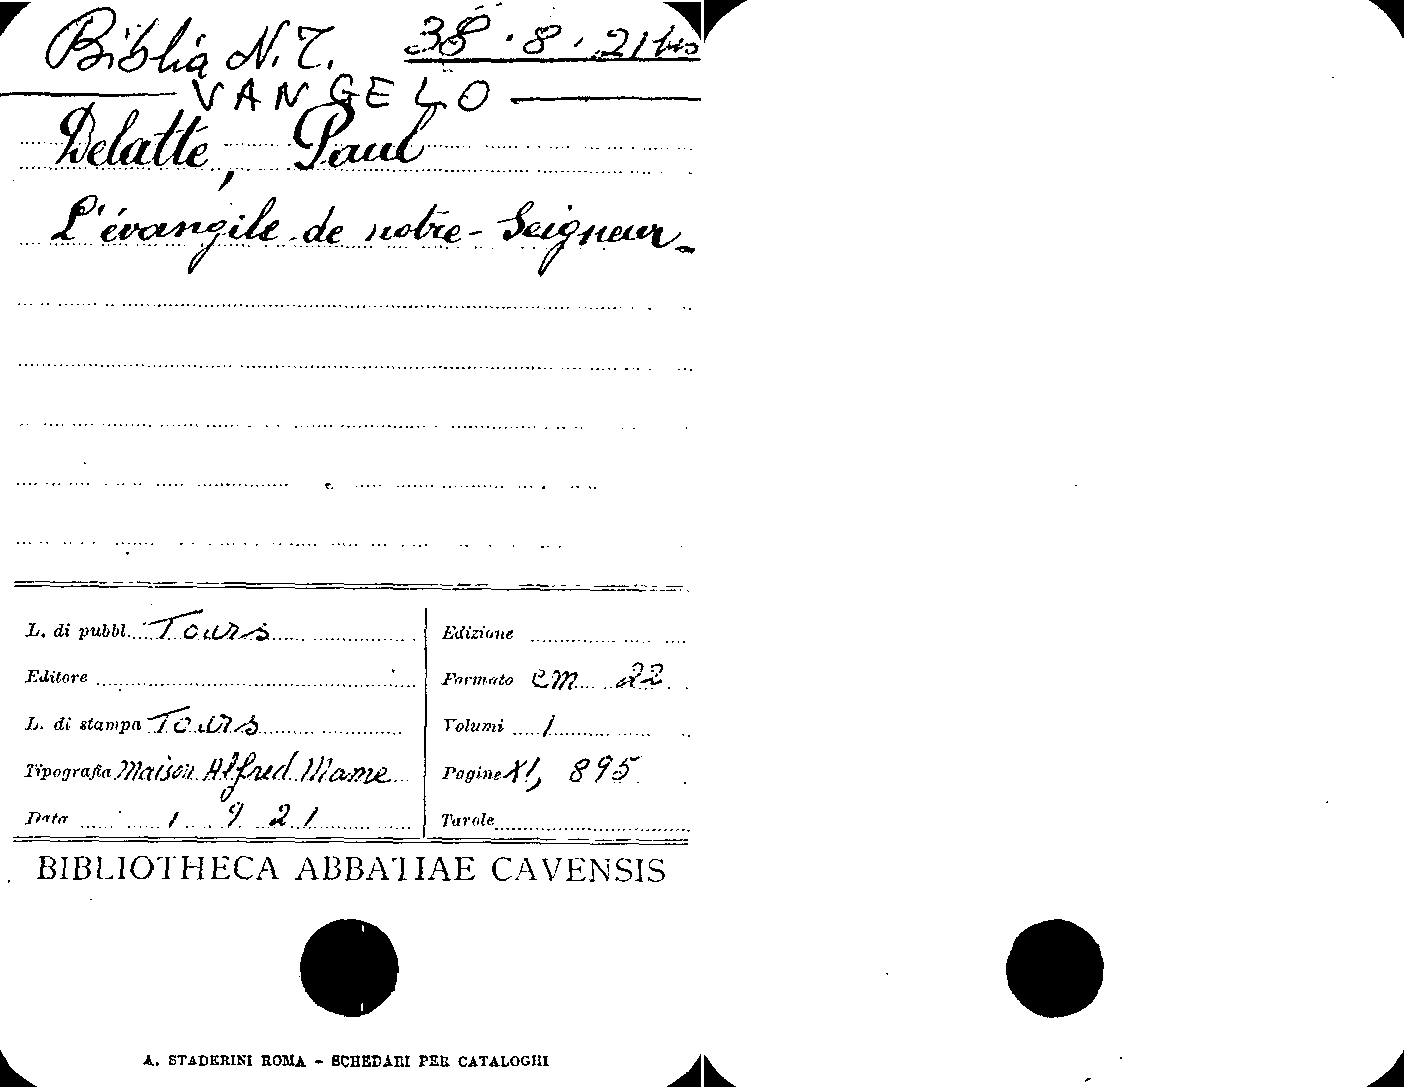 Biblia N.T. 38.8.21 bis
VANGELO
Delatte, Paul
L'évangile de notre-Seigneur-
L. di pubbl. Tours
Editore
L. di stampa Tours
Tipografia Maison Alfred Mame
Data 1921
Edizione
Formato cm 22
Volumi 1
Pagine XI, 895
Tavole
BIBLIOTHECA ABBATIAE CAVENSIS
A. STADERINI ROMA - SCHEDARI PER CATALOGHI